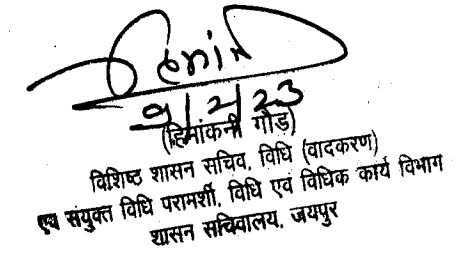 9/2/23
(हिमांकनी गौड)
विशिष्ठ शासन सचिव, विधि (वादकरण)
एवं संयुक्त विधि परामर्शी, विधि एवं विधिक कार्य विभाग
शासन सचिवालय, जयपुर